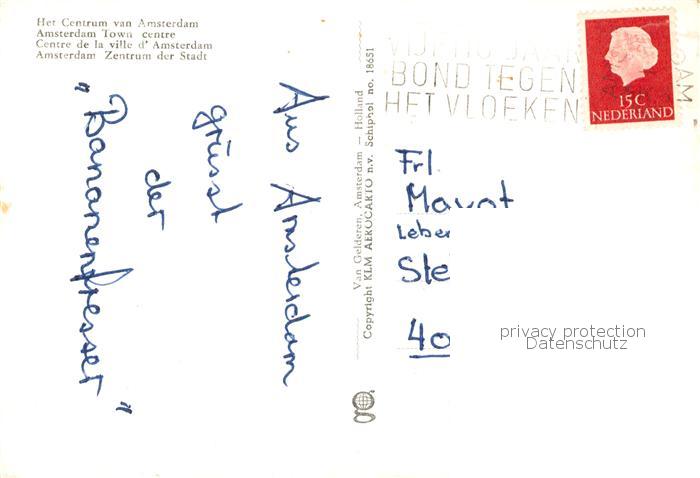 Het Centrum van Amsterdam
Amsterdam Town centre
Centre de la ville d' Amsterdam
Amsterdam Zentrum der Stadt
Aus Amsterdam
grüsst
der
"Bananenfresser"
Van Gelderen, Amsterdam — Holland
Copyright KLM AEROCARTO n.v. Schiphol no. 18651
VIJFTIG JAAR
BOND TEGEN
HET VLOEKEN
DAM
15C
NEDERLAND
Frl.
Leber
Ste
40
privacy protection
Datenschutz